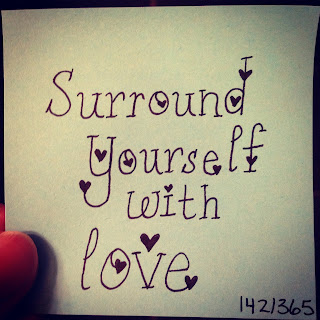 Surround
Yourself
with
love
142/365